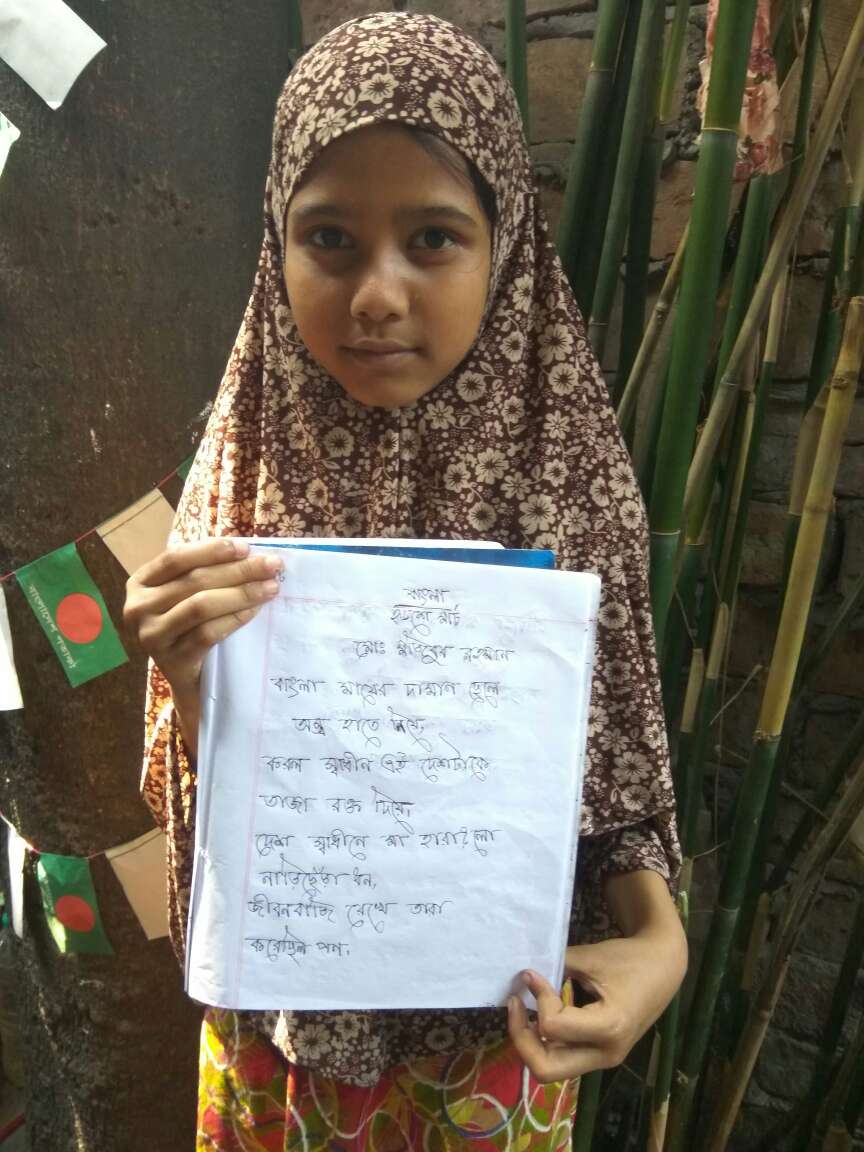 বাংলা
মার্চ
মোঃ রহমান
বাংলা মায়ের দামাল ছেলে
অস্ত্র হাতে নিয়ে,
করল স্বাধীন এই দেশটাকে
তাজা রক্ত দিয়ে,
দেশ স্বাধীনে মা হারাইলো
নাড়িছেঁড়া ধন,
জীবনবাজি রেখে তারা
করেছিল পন.
বাংলাদেশ পতাকা